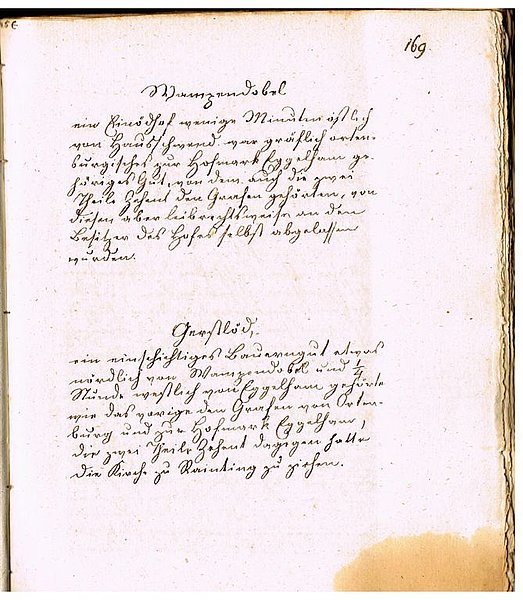 169
Wampendobel
ein Einödhof wenige Minuten östlich
von Hausschwend. war gräflich orten-
burgisches zur Hofmark Eggelham ge-
höriges Gut, von dem auch die zwei
Theile Zehent den Grafen gehörten, von
diesen aber leibrechtsweise an den
Besitzer des Hofes selbst abgelassen
wurden.
Gerstlöd,
ein einschichtiges Bauerngut etwas
nördlich von Wampendobel und 1/4
Stunde westlich von Eggelham gehörte
wie das vorige den Grafen von Orten-
burg und zur Hofmark Eggelham,
die zwei Theile Zehent dagegen hatte
die Kirche zu Rainting zu ziehen.